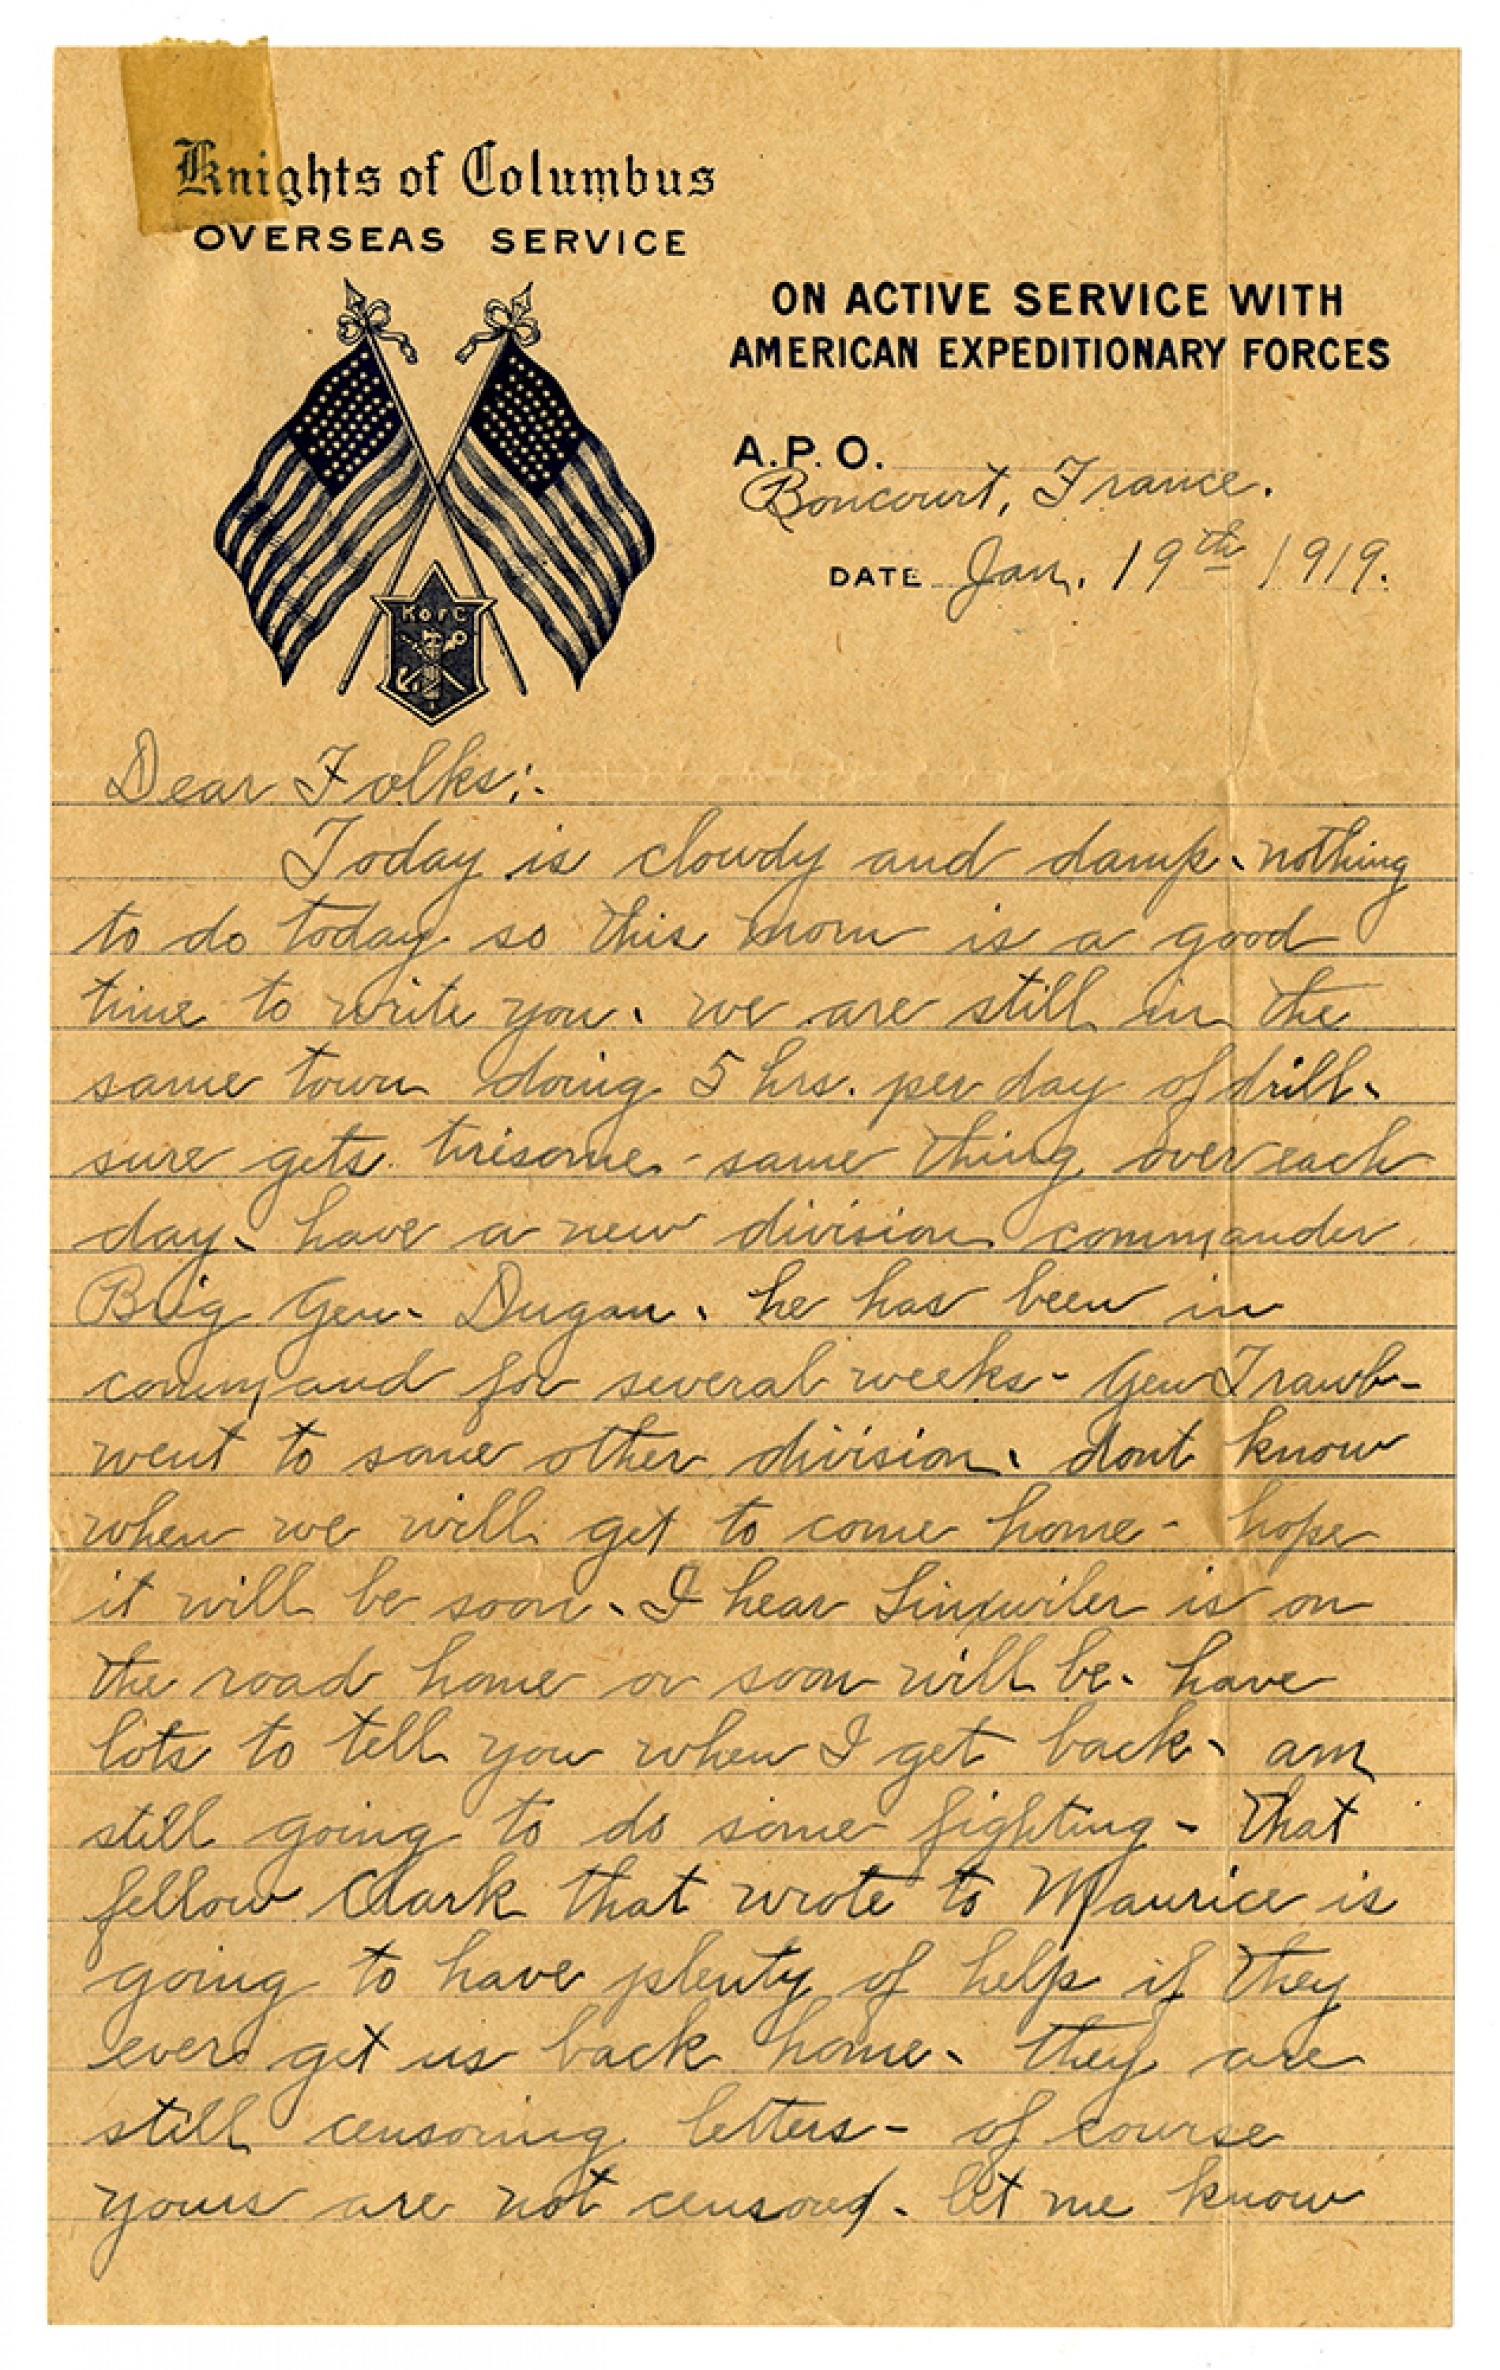 Knights of Columbus
OVERSEAS SERVICE
ON ACTIVE SERVICE WITH
AMERICAN EXPEDITIONARY FORCES
A.P.O.
Boncourt, France.
DATE Jan. 19th 1919.
K of C
Dear Folks:-
Today is cloudy and damp - nothing
to do today so this morn is a good
time to write you - we are still in the
same town doing 5 hrs. per day of drill -
sure gets tiresome - same thing over each
day - have a new division commander
Brig Gen - Dugan - he has been in
command for several weeks - Gen Traub -
went to some other division - dont know
when we will get to come home - hope
it will be soon - I hear Linxwiler is on
the road home or soon will be - have
lots to tell you when I get back - am
still going to do some fighting - that
fellow Clark that wrote to Maurice is
going to have plenty of help if they
ever get us back home - they are
still censoring letters - of course
yours are not censored - let me know